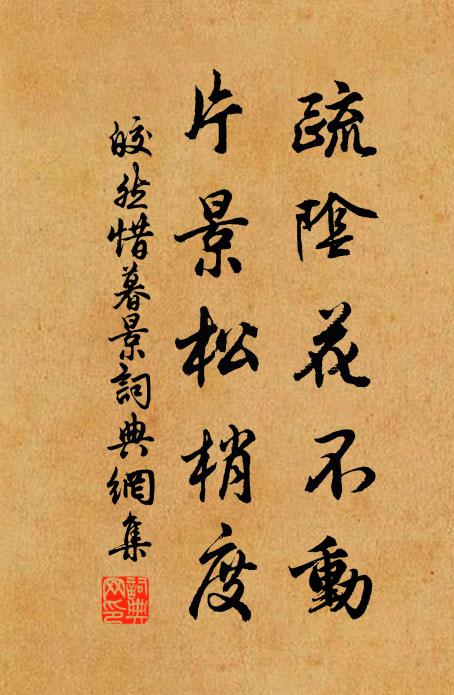 疏陰花不動
片景松梢度
皎然惜暮景詞典網集
詞典網印